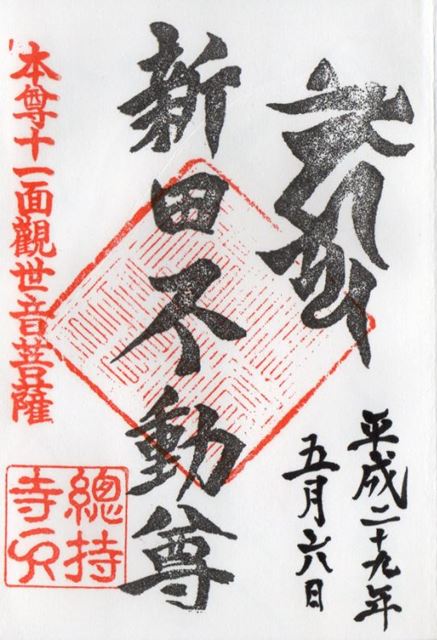 平成二十九年
五月六日
新田不動尊
本尊十一面觀世音菩薩
總持
寺印